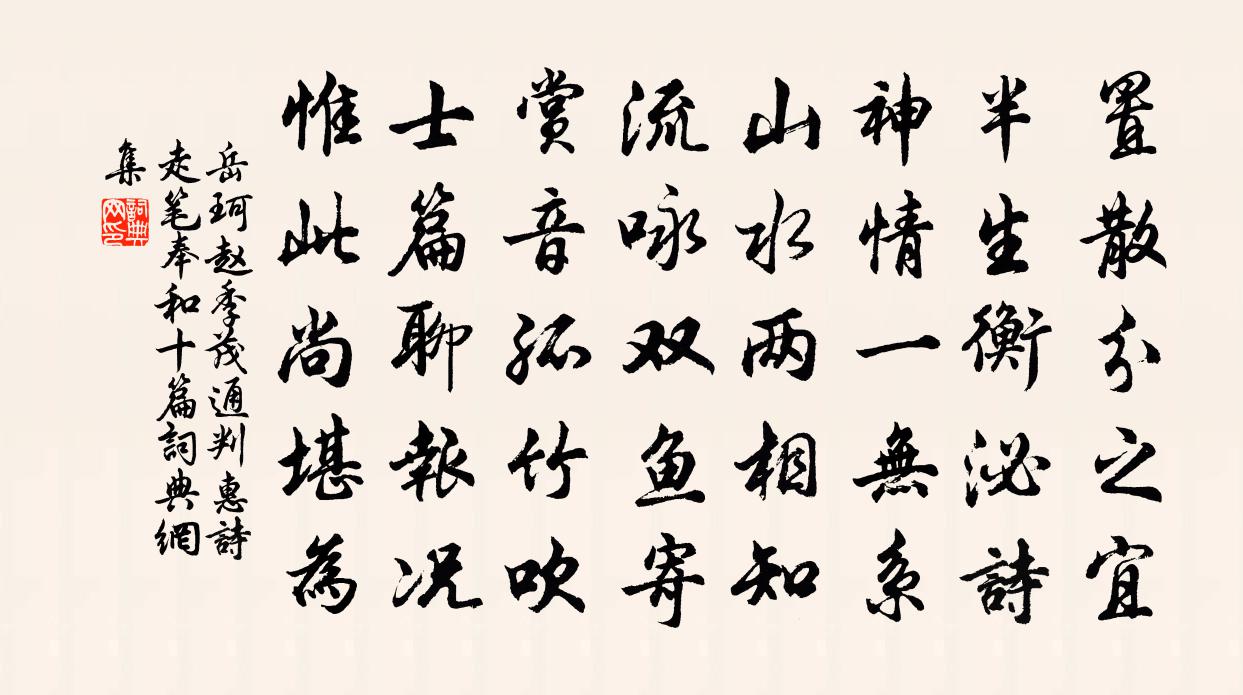 置散分之宜
半生衡泌詩
神情一無系
山水两相知
流咏双鱼寄
赏音孤竹吹
士篇聊報况
惟此尚堪為
岳珂赵季茂通判惠詩
走笔奉和十篇詞典網
集
詞典網印